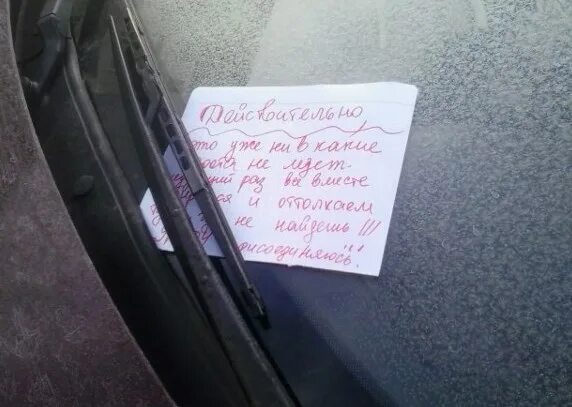 Действительно,
это уже ни в какие
не лезет.
раз все вместе
и оттолкаем
не найдешь!!!
присоединяюсь!